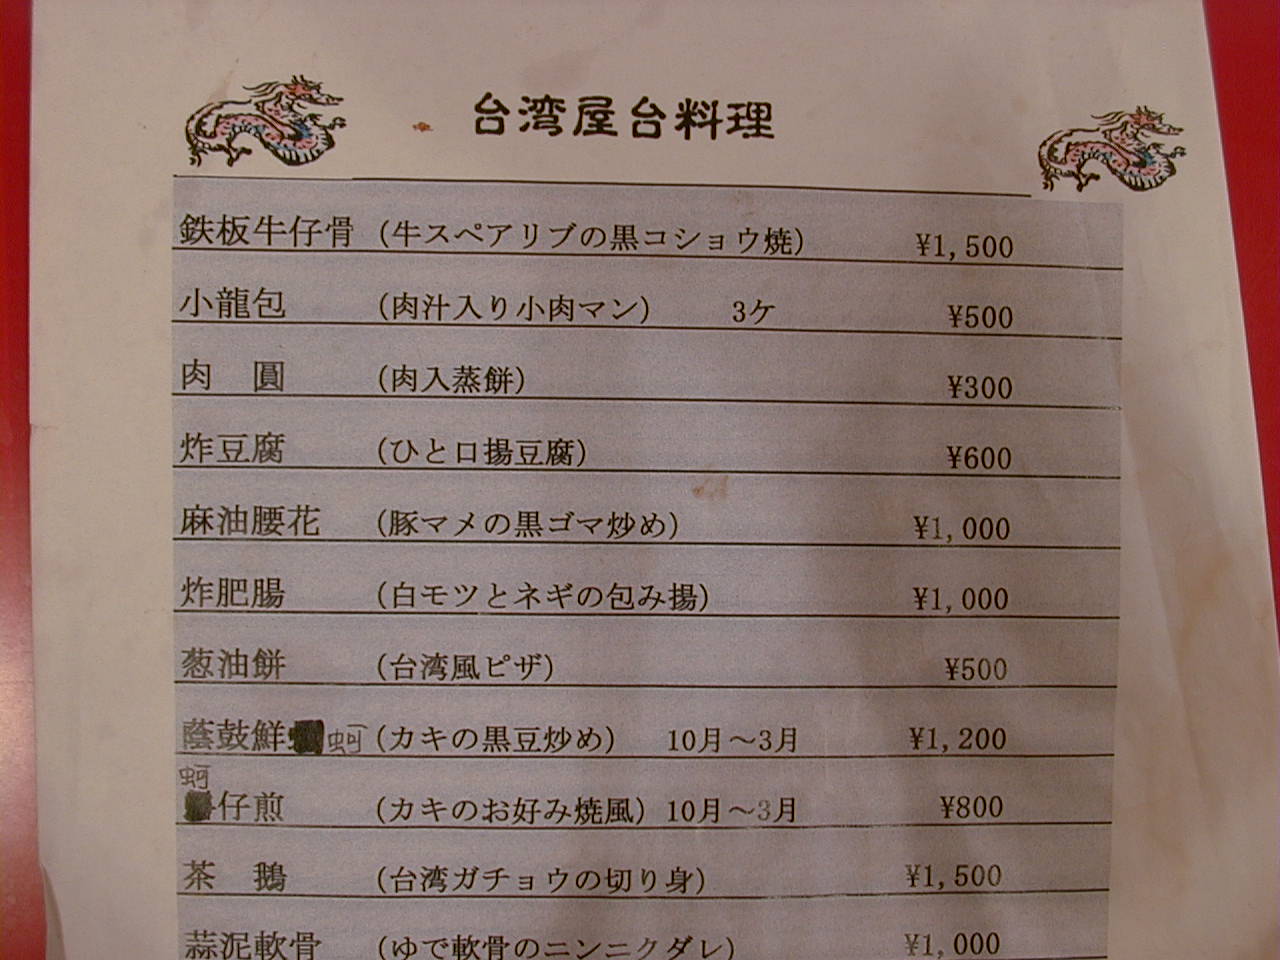 台湾屋台料理
鉄板牛仔骨 (牛スペアリブの黒コショウ焼) ¥1,500
小龍包 (肉汁入り小肉マン) 3ケ ¥500
肉 圓 (肉入蒸餅) ¥300
炸豆腐 (ひと口揚豆腐) ¥600
麻油腰花 (豚マメの黒ゴマ炒め) ¥1,000
炸肥腸 (白モツとネギの包み揚) ¥1,000
葱油餅 (台湾風ピザ) ¥500
蔭鼓鮮蚵 (カキの黒豆炒め) 10月～3月 ¥1,200
蚵仔煎 (カキのお好み焼風) 10月～3月 ¥800
茶 鵝 (台湾ガチョウの切り身) ¥1,500
蒜泥軟骨 (ゆで軟骨のニンニクダレ) ¥1,000